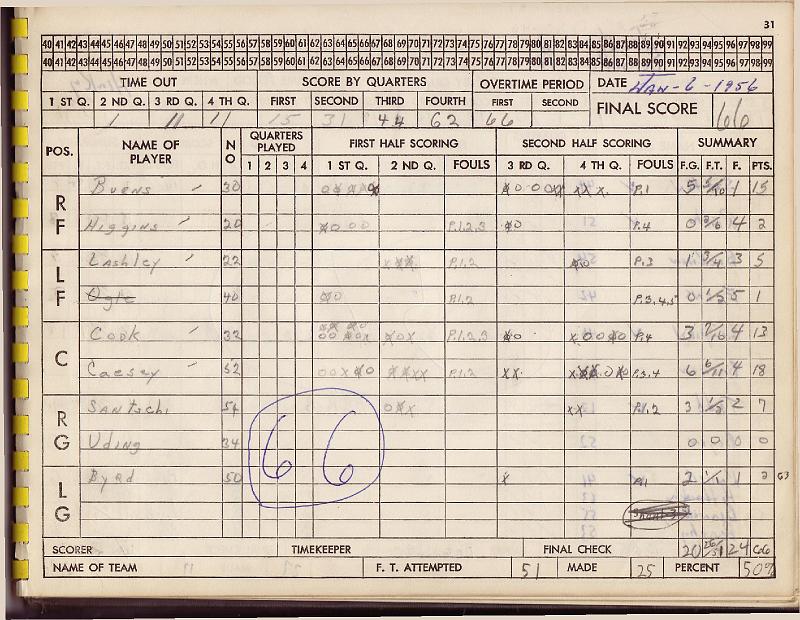 31
40 41 42 43 44 45 46 47 48 49 50 51 52 53 54 55 56 57 58 59 60 61 62 63 64 65 66 67 68 69 70 71 72 73 74 75 76 77 78 79 80 81 82 83 84 85 86 87 88 89 90 91 92 93 94 95 96 97 98 99
40 41 42 43 44 45 46 47 48 49 50 51 52 53 54 55 56 57 58 59 60 61 62 63 64 65 66 67 68 69 70 71 72 73 74 75 76 77 78 79 80 81 82 83 84 85 86 87 88 89 90 91 92 93 94 95 96 97 98 99
TIME OUT SCORE BY QUARTERS OVERTIME PERIOD DATE JAN-6-1956
1 ST Q. 2 ND Q. 3 RD Q. 4 TH Q. FIRST SECOND THIRD FOURTH FIRST SECOND FINAL SCORE 66
1 11 11 15 31 44 62 66
POS. NAME OF PLAYER NO QUARTERS PLAYED FIRST HALF SCORING SECOND HALF SCORING SUMMARY
1 2 3 4 1 ST Q. 2 ND Q. FOULS 3 RD Q. 4 TH Q. FOULS F.G. F.T. F. PTS.
RF 30 P.1 5 5/10 1 15
Higgins 20 P.1,2,3 P.4 0 2/6 4 2
LF Lashley 22 P.1,2 P.3 1 3/4 3 5
Ogle 40 P.1,2 P.3,4,5 0 5 1
C Cook 32 P.1,2,3 P.4 3 7/10 4 13
Caesey 52 P.1,2 P.3,4 6 6/11 4 18
RG Santschi 54 P.1,2 3 2 7
Uding 34 0 0 0 0
LG Byrd 50 P.1 2 1/1 1 63
66
SCORER TIMEKEEPER FINAL CHECK 20 24 66
NAME OF TEAM F. T. ATTEMPTED 51 MADE 25 PERCENT 50%